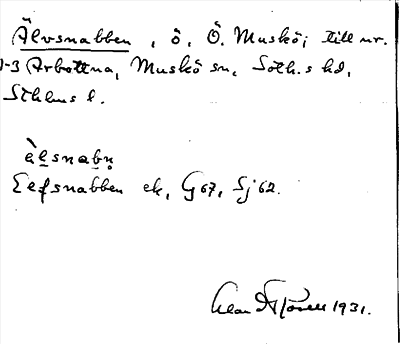 Älvsnabben, ö, Ö. Muskö; till nr.
1-3 Arbottna, Muskö sn, Soth.s hd,
Sthlms l.
àlsnabn̥
Eefsnabben ek, G 67, Sj 62.
1931.